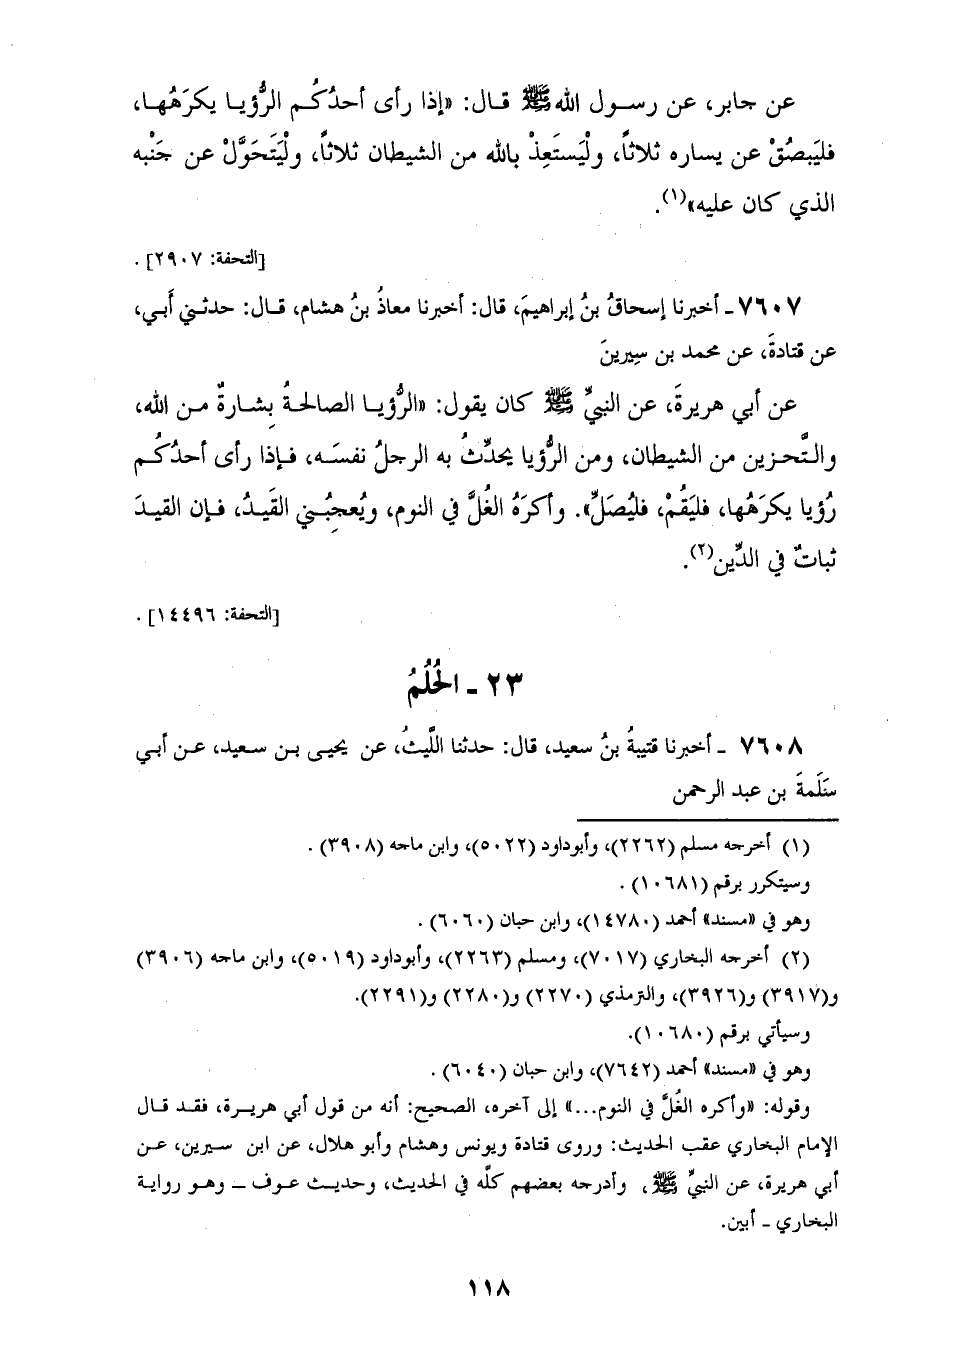 عن جابر، عن رسول الله ﷺ قال: «إذا رأى أحدُكُم الرُّؤيا يكرَهُها،
فليَبصُقْ عن يساره ثلاثاً، ولْيَستَعِذْ بالله من الشيطان ثلاثاً، ولْيَتَحَوَّلْ عن جَنْبه
الذي كان عليه»(١).
[التحفة: ٢٩٠٧].
٧٦٠٧ ـ أخبرنا إسحاقُ بنُ إبراهيمَ، قال: أخبرنا معاذُ بنُ هشام، قال: حدثني أَبي،
عن قتادةَ، عن محمد بن سِيرينَ
عن أبي هريرةَ، عن النبيِّ ﷺ كان يقول: «الرُّؤيا الصالحةُ بِشارةٌ من الله،
والتَّحزين من الشيطان، ومن الرُّؤيا يحدِّثُ به الرجلُ نفسَه، فإذا رأى أحدُكُم
رُؤيا يكرَهُها، فليَقُمْ، فليُصَلِّ». وأكرَهُ الغُلَّ في النوم، ويُعجِبُني القَيدُ، فإن القيدَ
ثباتٌ في الدِّين(٢).
[التحفة: ١٤٤٩٦].
٢٣ ـ الحُلُمُ
٧٦٠٨ ـ أخبرنا قتيبةُ بنُ سعيد، قال: حدثنا اللَّيثُ، عن يحيى بن سعيد، عن أبي
سَلَمةَ بن عبد الرحمن
(١) أخرجه مسلم (٢٢٦٢)، وأبوداود (٥٠٢٢)، وابن ماجه (٣٩٠٨).
وسيتكرر برقم (١٠٦٨١).
وهو في «مسند» أحمد (١٤٧٨٠)، وابن حبان (٦٠٦٠).
(٢) أخرجه البخاري (٧٠١٧)، ومسلم (٢٢٦٣)، وأبوداود (٥٠١٩)، وابن ماجه (٣٩٠٦)
و(٣٩١٧) و(٣٩٢٦)، والترمذي (٢٢٧٠) و(٢٢٨٠) و(٢٢٩١).
وسيأتي برقم (١٠٦٨٠).
وهو في «مسند» أحمد (٧٦٤٢)، وابن حبان (٦٠٤٠).
وقوله: «وأكره الغُلَّ في النوم...» إلى آخره، الصحيح: أنه من قول أبي هريرة، فقد قال
الإمام البخاري عقب الحديث: وروى قتادة ويونس وهشام وأبو هلال، عن ابن سيرين، عن
أبي هريرة، عن النبيِّ ﷺ، وأدرجه بعضهم كلَّه في الحديث، وحديث عوف ـ وهو رواية
البخاري ـ أبين.
١١٨